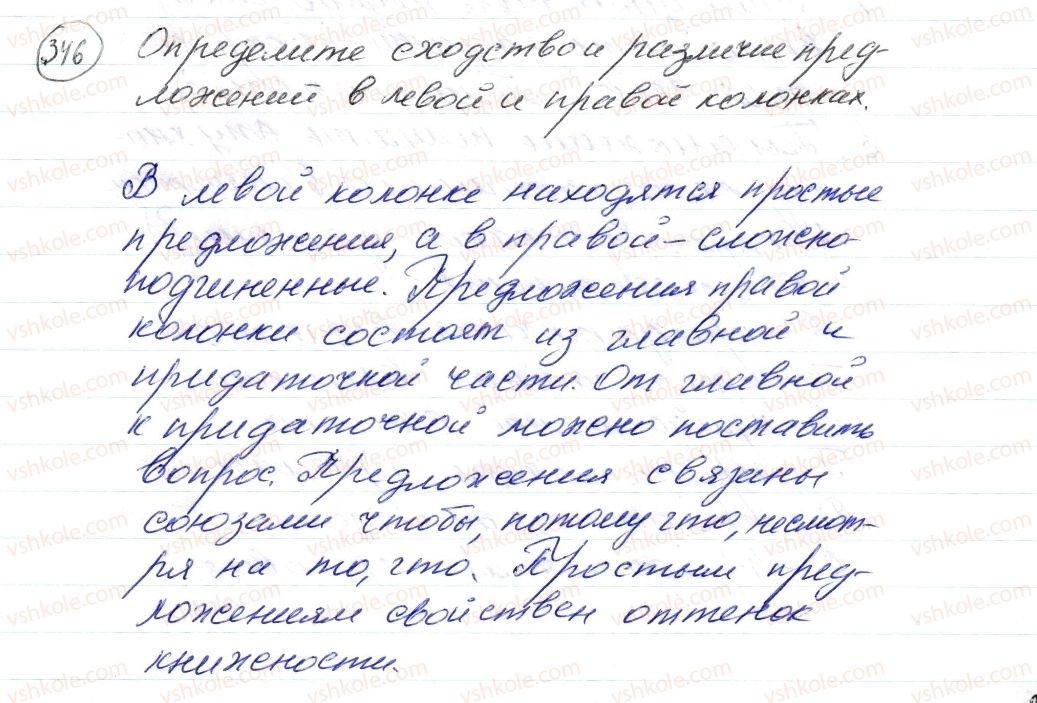 346 Определите сходство и различие пред-
ложений в левой и правой колонках.
В левой колонке находятся простые
предложения, а в правой – сложно
подчиненные. Предложения правой
колонки состоят из главной и
придаточной части. От главной
к придаточной можно поставить
вопрос. Предложения связаны
союзами чтобы, потому что, несмот-
ря на то, что. Простым пред-
ложениям свойствен оттенок
книжности.